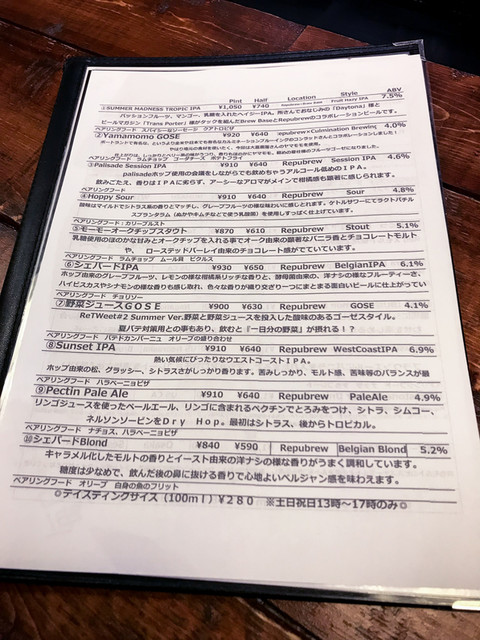 Pint Half Location Style ABV
①SUMMER MADNESS TROPIC IPA ¥1,050 ¥740 Fruit Hazy IPA 7.5%
パッションフルーツ、マンゴー、乳糖を入れたヘイジーIPA。所さんでおなじみの「Daytona」様と
ビールマガジン「Trans Porter」様がタッグを組んだBrew BaseとRepubrewのコラボレーションビールです。
ペアリングフード スパイシーなソーセージ クアトロピザ
②Yamamomo GOSE ¥920 ¥640 Repubrew×Culmination Brewing 4.0%
ペアリングフード ラムチョップ コーダチーズ ポテトフライ
③Palisade Session IPA ¥910 ¥640 Repubrew Session IPA 4.6%
palisadeホップ使用の会議をしながらでも飲めちゃうアルコール低めのIPA。
飲みごたえ、香りはIPAに劣らず、アーシーなアロマがメインで柑橘感も顕著に感じられます。
ペアリングフード
④Hoppy Sour ¥910 ¥640 Repubrew Sour 4.8%
酸味はマイルドでシトラス系の香りとマッチし、グレープフルーツの様な味わいに感じとれます。ケトルサワーにてラクトバチル
スプランタラム（ぬかやキムチなどで使う乳酸菌）を使用しすっぱく仕上げています。
ペアリングフード：カリーブルスト
⑤モーモーオークチップスタウト ¥870 ¥610 Repubrew Stout 5.1%
乳糖使用のほのかな甘みとオークチップを入れる事でオーク由来の顕著なバニラ香とチョコレートモルト
や、ローステッドバーレイ由来のチョコレート感がでていています。
ペアリングフード ラムチョップ ムール貝 ピクルス
⑥シェパードIPA ¥930 ¥650 Repubrew BelgianIPA 6.1%
ホップ由来のグレープフルーツ、レモンの様な柑橘系リッチな香りと、酵母菌由来の、洋ナシの様なフルーティーさ、
ハイビスカスやシナモンの様な香りも感じ取れ、色々な香りが織り交ぎり一つにまとまる面白いビールに仕上がってい
ペアリングフード チョリソー
⑦野菜ジュースGOSE ¥900 ¥630 Repubrew GOSE 4.1%
ReTWeet#2 Summer Ver.野菜と野菜ジュースを投入した酸味のあるゴーゼスタイル。
夏バテ対策用との事もあり、飲むと『一日分の野菜』が摂れる！？
ペアリングフード パテドカンパーニュ オリーブの盛り合わせ
⑧Sunset IPA ¥910 ¥640 Repubrew WestCoastIPA 6.9%
熱い気候にぴったりなウエストコーストIPA。
ホップ由来の松、グラッシー、シトラスさがしっかり香ります。苦みしっかり、モルト感、苦味等のバランスが最
ペアリングフード ハラペーニョピザ
⑨Pectin Pale Ale ¥910 ¥640 Repubrew PaleAle 4.9%
リンゴジュースを使ったペールエール、リンゴに含まれるペクチンでとろみをつけ、シトラ、シムコー、
ネルソンソービンをDry Hop。最初はシトラス、後からトロピカル。
ペアリングフード ナチョス、ハラペーニョピザ
⑩シェパードBlond ¥840 ¥590 Repubrew Belgian Blond 5.2%
キャラメル化したモルトの香りとイースト由来の洋ナシの様な香りがうまく調和しています。
糖度は少なめで、飲んだ後の鼻に抜ける香りで心地よいベルジャン感を味わえます。
ペアリングフード オリーブ 白身の魚のフリット
◎テイスティングサイズ（100ml）¥280 ※土日祝日13時～17時のみ◎